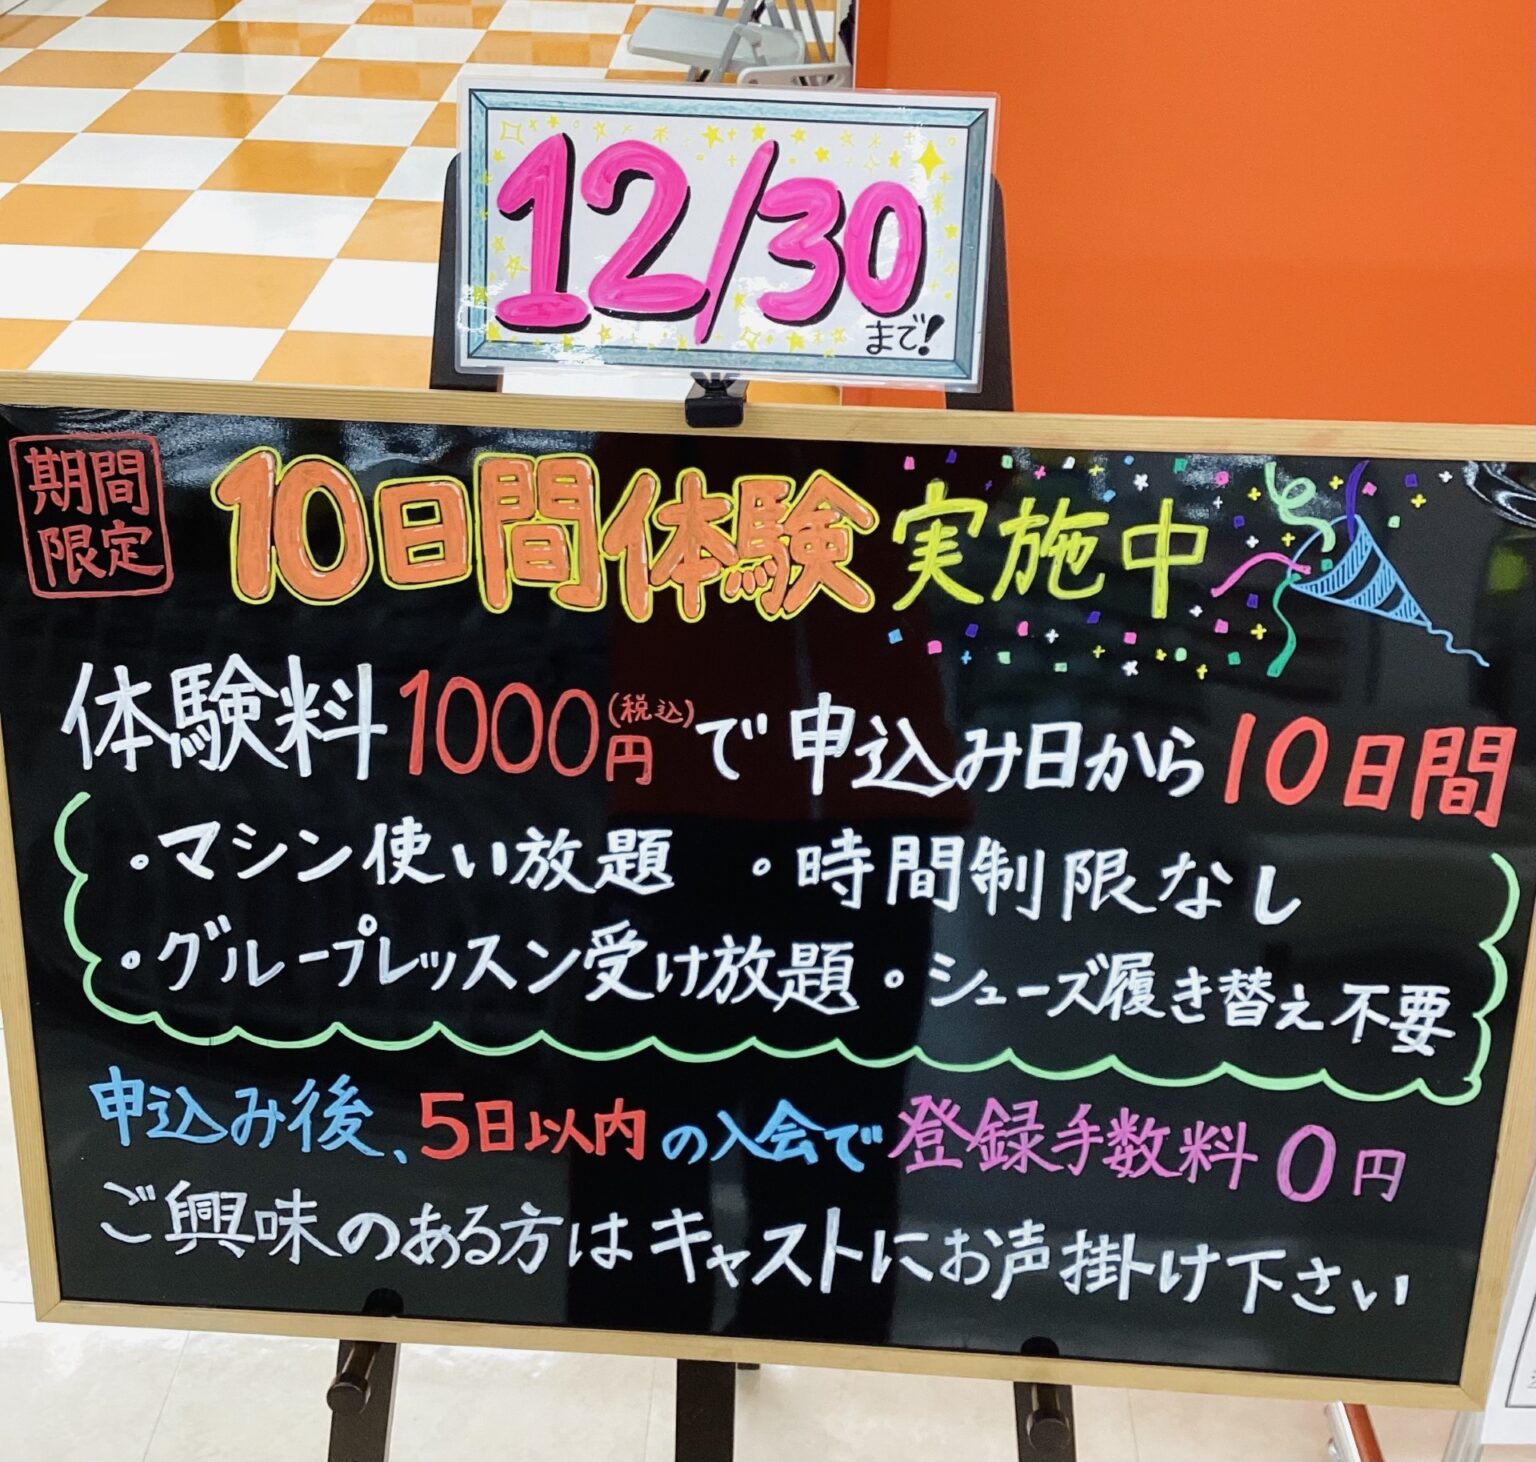 12/30
まで!
期間
限定
10日間体験実施中
体験料1000円(税込)で申込み日から10日間
・マシン使い放題 ・時間制限なし
・グループレッスン受け放題・シューズ履き替え不要
申込み後、5日以内の入会で登録手数料0円
ご興味のある方はキャストにお声掛け下さい